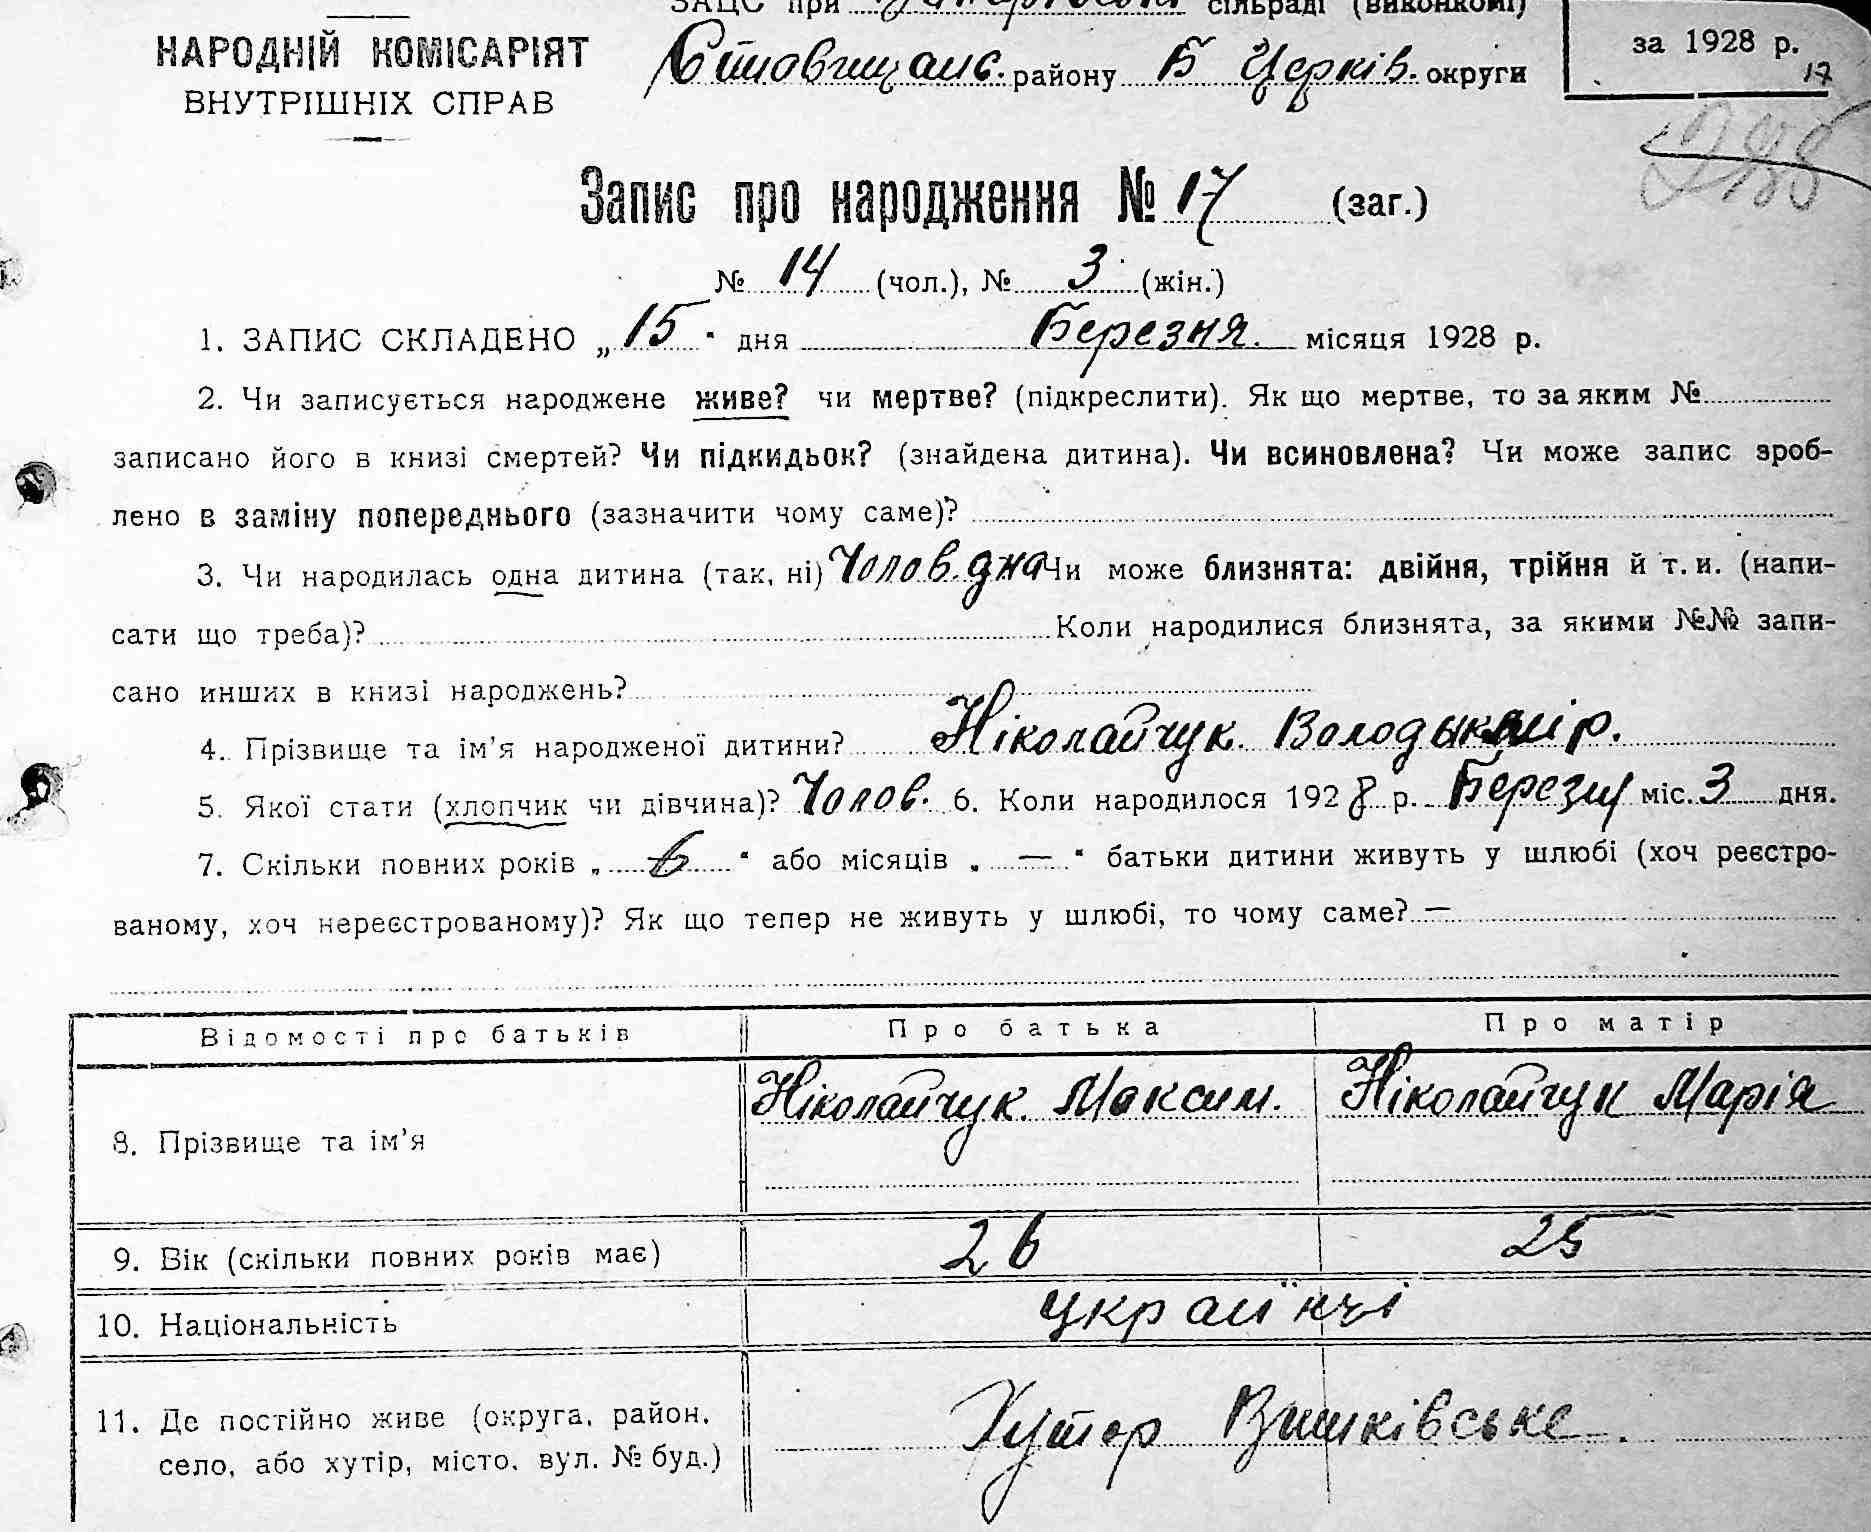 ЗАЦС при сільраді (виконкомі)
НАРОДНІЙ КОМІСАРІЯТ
ВНУТРІШНІХ СПРАВ
району Б Церків. округи
за 1928 р.
17
Запис про народження № 17 (заг.)
№ 14 (чол.), № 3 (жін.)
1. ЗАПИС СКЛАДЕНО „15" дня Березня. місяця 1928 р.
2. Чи записується народжене живе? чи мертве? (підкреслити). Як що мертве, то за яким №
записано його в книзі смертей? Чи підкидьок? (знайдена дитина). Чи всиновлена? Чи може запис зроб-
лено в заміну попереднього (зазначити чому саме)?
3. Чи народилась одна дитина (так, ні) Чолов. дна Чи може близнята: двійня, трійня й т. и. (напи-
сати що треба)? Коли народилися близнята, за якими №№ запи-
сано инших в книзі народжень?
4. Прізвище та ім'я народженої дитини? Ніколайчук.
5. Якої стати (хлопчик чи дівчина)? Чолов. 6. Коли народилося 1928 р. міс. 3 дня.
7. Скільки повних років „6" або місяців „—" батьки дитини живуть у шлюбі (хоч реєстро-
ваному, хоч нереєстрованому)? Як що тепер не живуть у шлюбі, то чому саме? —
Відомості про батьків Про батька Про матір
8. Прізвище та ім'я Ніколайчук. Максим. Ніколайчук Марія
9. Вік (скільки повних років має) 26 25
10. Національність українці
11. Де постійно живе (округа, район, село, або хутір, місто, вул. № буд.) Хутор